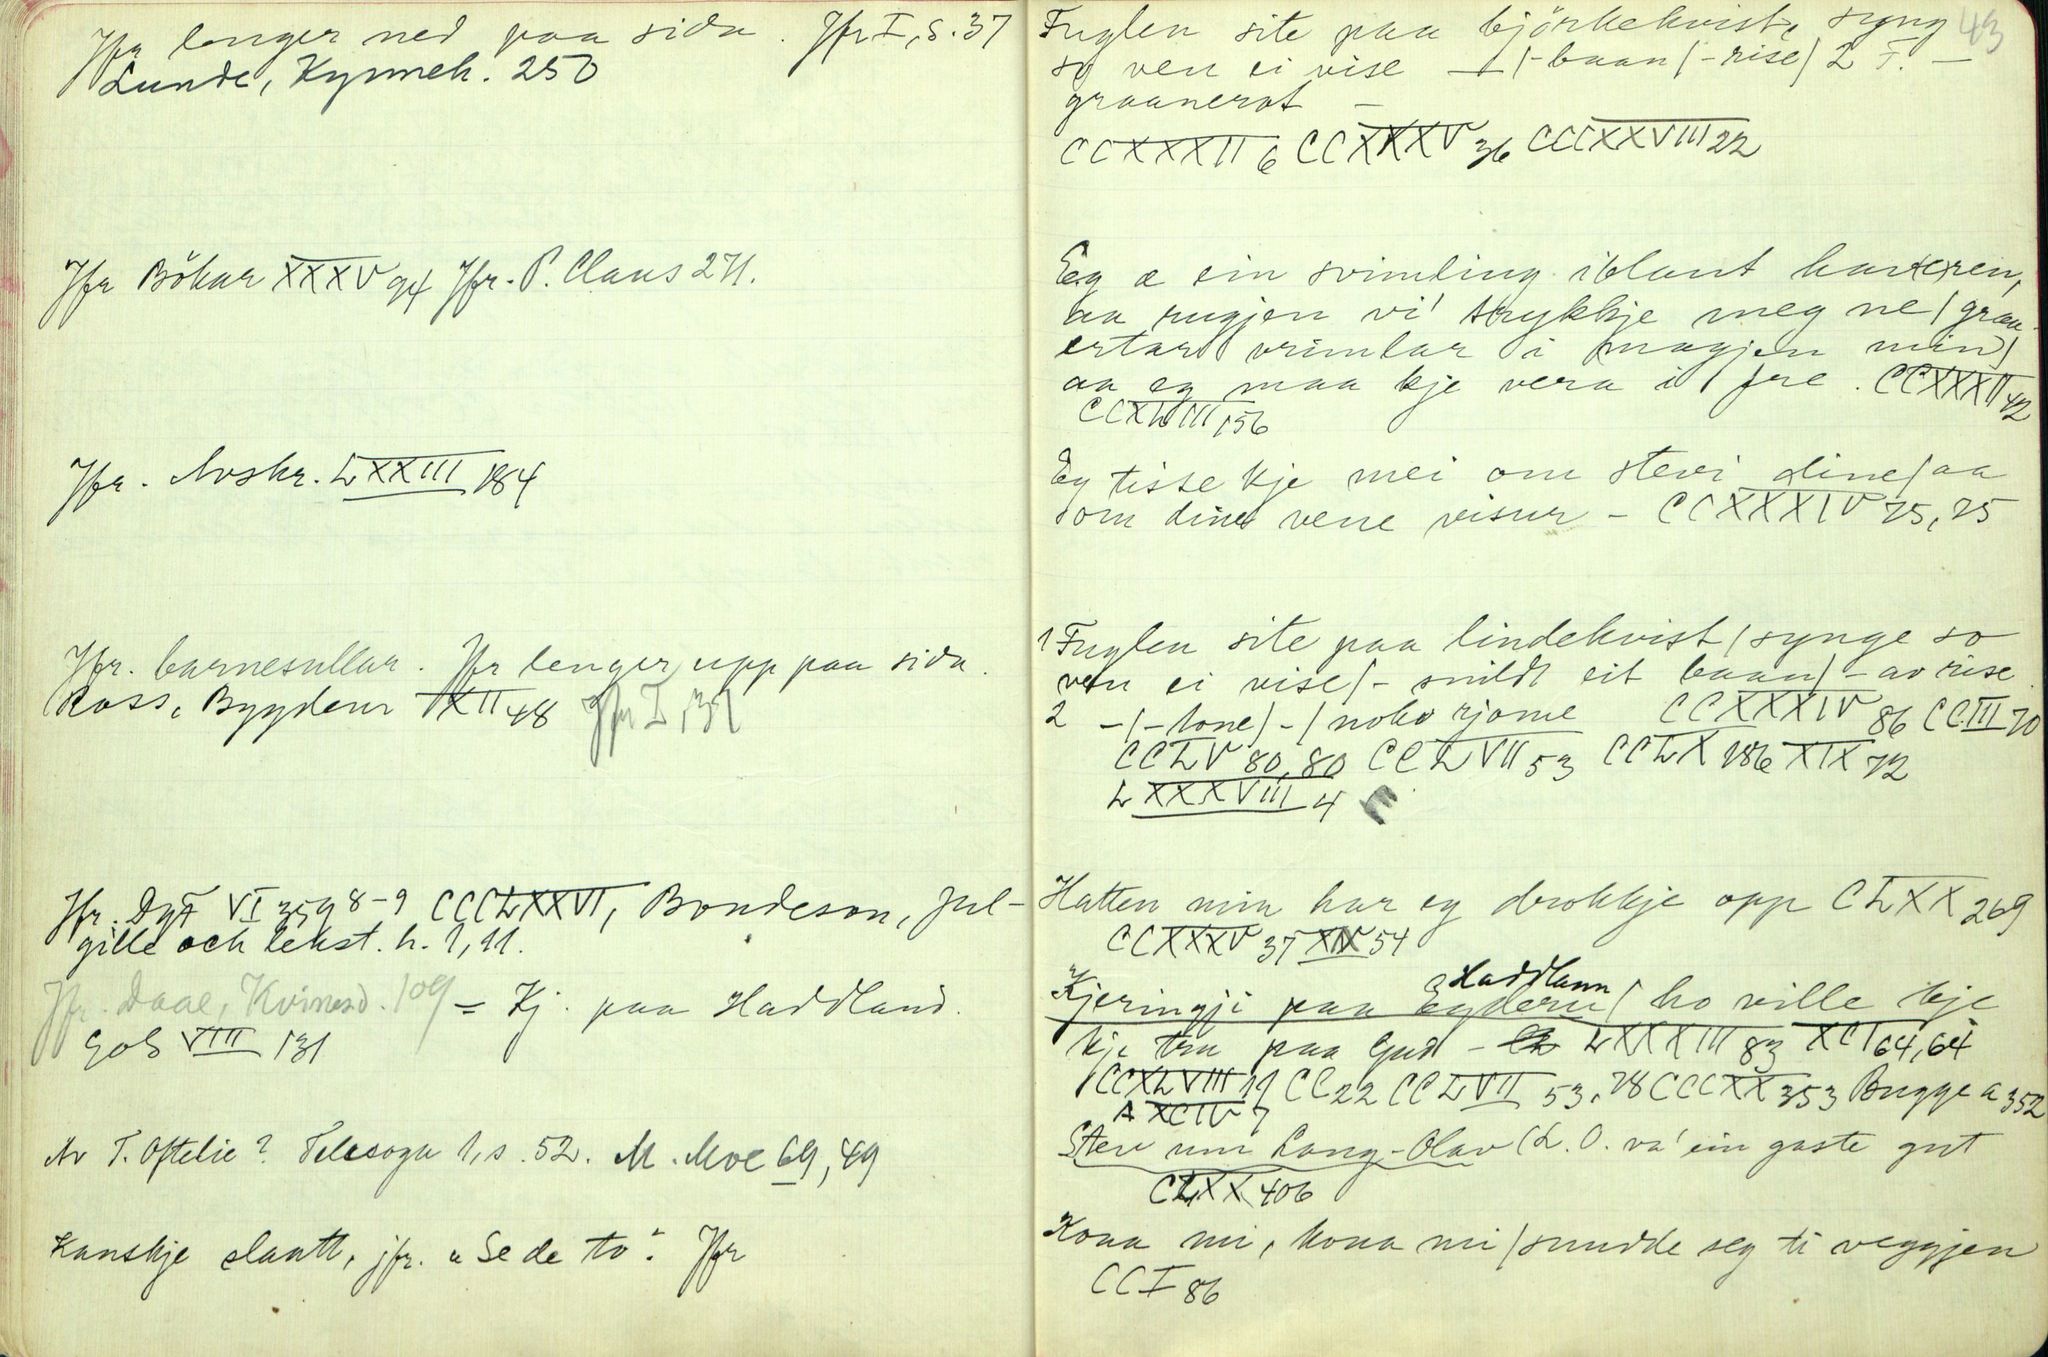 Jfr lenger ned paa sida. Jfr I, S. 37
Lunde, Kynneh. 250
Jfr Bökar XXXV 94 Jfr. P. Claus 271.
Jfr. Avskr. LXXIII 184
Jfr. barnesullar. Jfr lenger upp paa sida.
Ross, Bygdem XII 48 Jfr I, 37
Jfr. DgF VI 359 8-9 CCCLXXVI, Bondeson, Jul-
gille och lekst. h. 1, 11.
Jfr. Daae, Kvinesd. 109 = Kj. paa Haddland.
GoS VIII 131
Av T. Oftelie? Telesoga 1, s. 52. M. Moe 69, 49
Kanskje slaatt, jfr. "Se de to". Jfr
43
Fuglen site paa björkekviste, syng
so ven ei vise — /- baan /- rise / 2 F. —
graanerot —
CCXXXII 6 CCXXXV 36 CCCXXVIII 22
Eg æ ein svimling iblant haveren,
aa rugjen vi' trykkje meg ne / graa-
ertar vrimlar i magjen min /
aa eg maa kje vera i fre. CCXXXII 42
CCXLVIII 156
Eg tisse kje mei om stevi dine / aa
om dine vene visur - CCXXXIV 75, 75
1 Fuglen site paa lindekvist / synge so
ven ei vise / - snildt eit baan / - av rise.
2 - / - tone / - / noko rjome CCXXXIV 86 CCIII 70
CCLV 80, 80 CCLVII 53 CCLX 186 XIX 72
LXXXVIII 4 E
Hatten min har eg drokkje opp CLXX 269
CCXXXV 37 XIV 54
Haddlann
Kjeringji paa Eyderu / ho ville kje
kje tru paa Gud - LXXXIII 83 XCI 64, 64
CCXLVIII 11 CC 22 CCLVII 53, 78 CCCXX 353 Bugge a 352
A XCIV 7
Stev um Lang-Olav (L. O. va' ein gaste gut
CLXX 406
Kona mi, kona mi / snudde seg ti veggjen
CCI 86